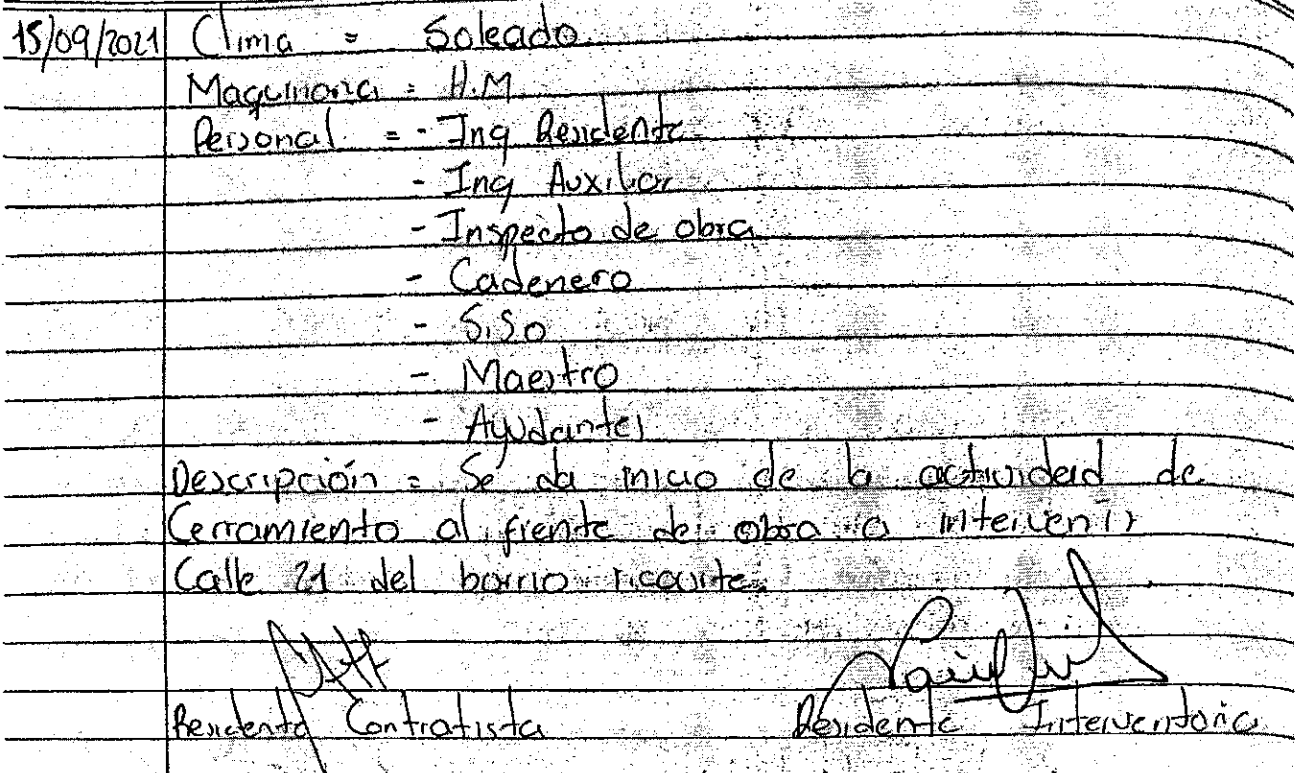 15/09/2021 Clima = Soleado.
Maquinaria = H.M
Personal = - Ing Residente
- Ing Auxiliar
- Inspecto de obra
- Cadenero
- S.I.S.O
- Maestro
- Ayudantes
Descripción = Se da inicio de la actividad de
Cerramiento al frente de obra a intervenir
Calle 21 del barrio ricaurte.
Residente Contratista Residente Interventoria